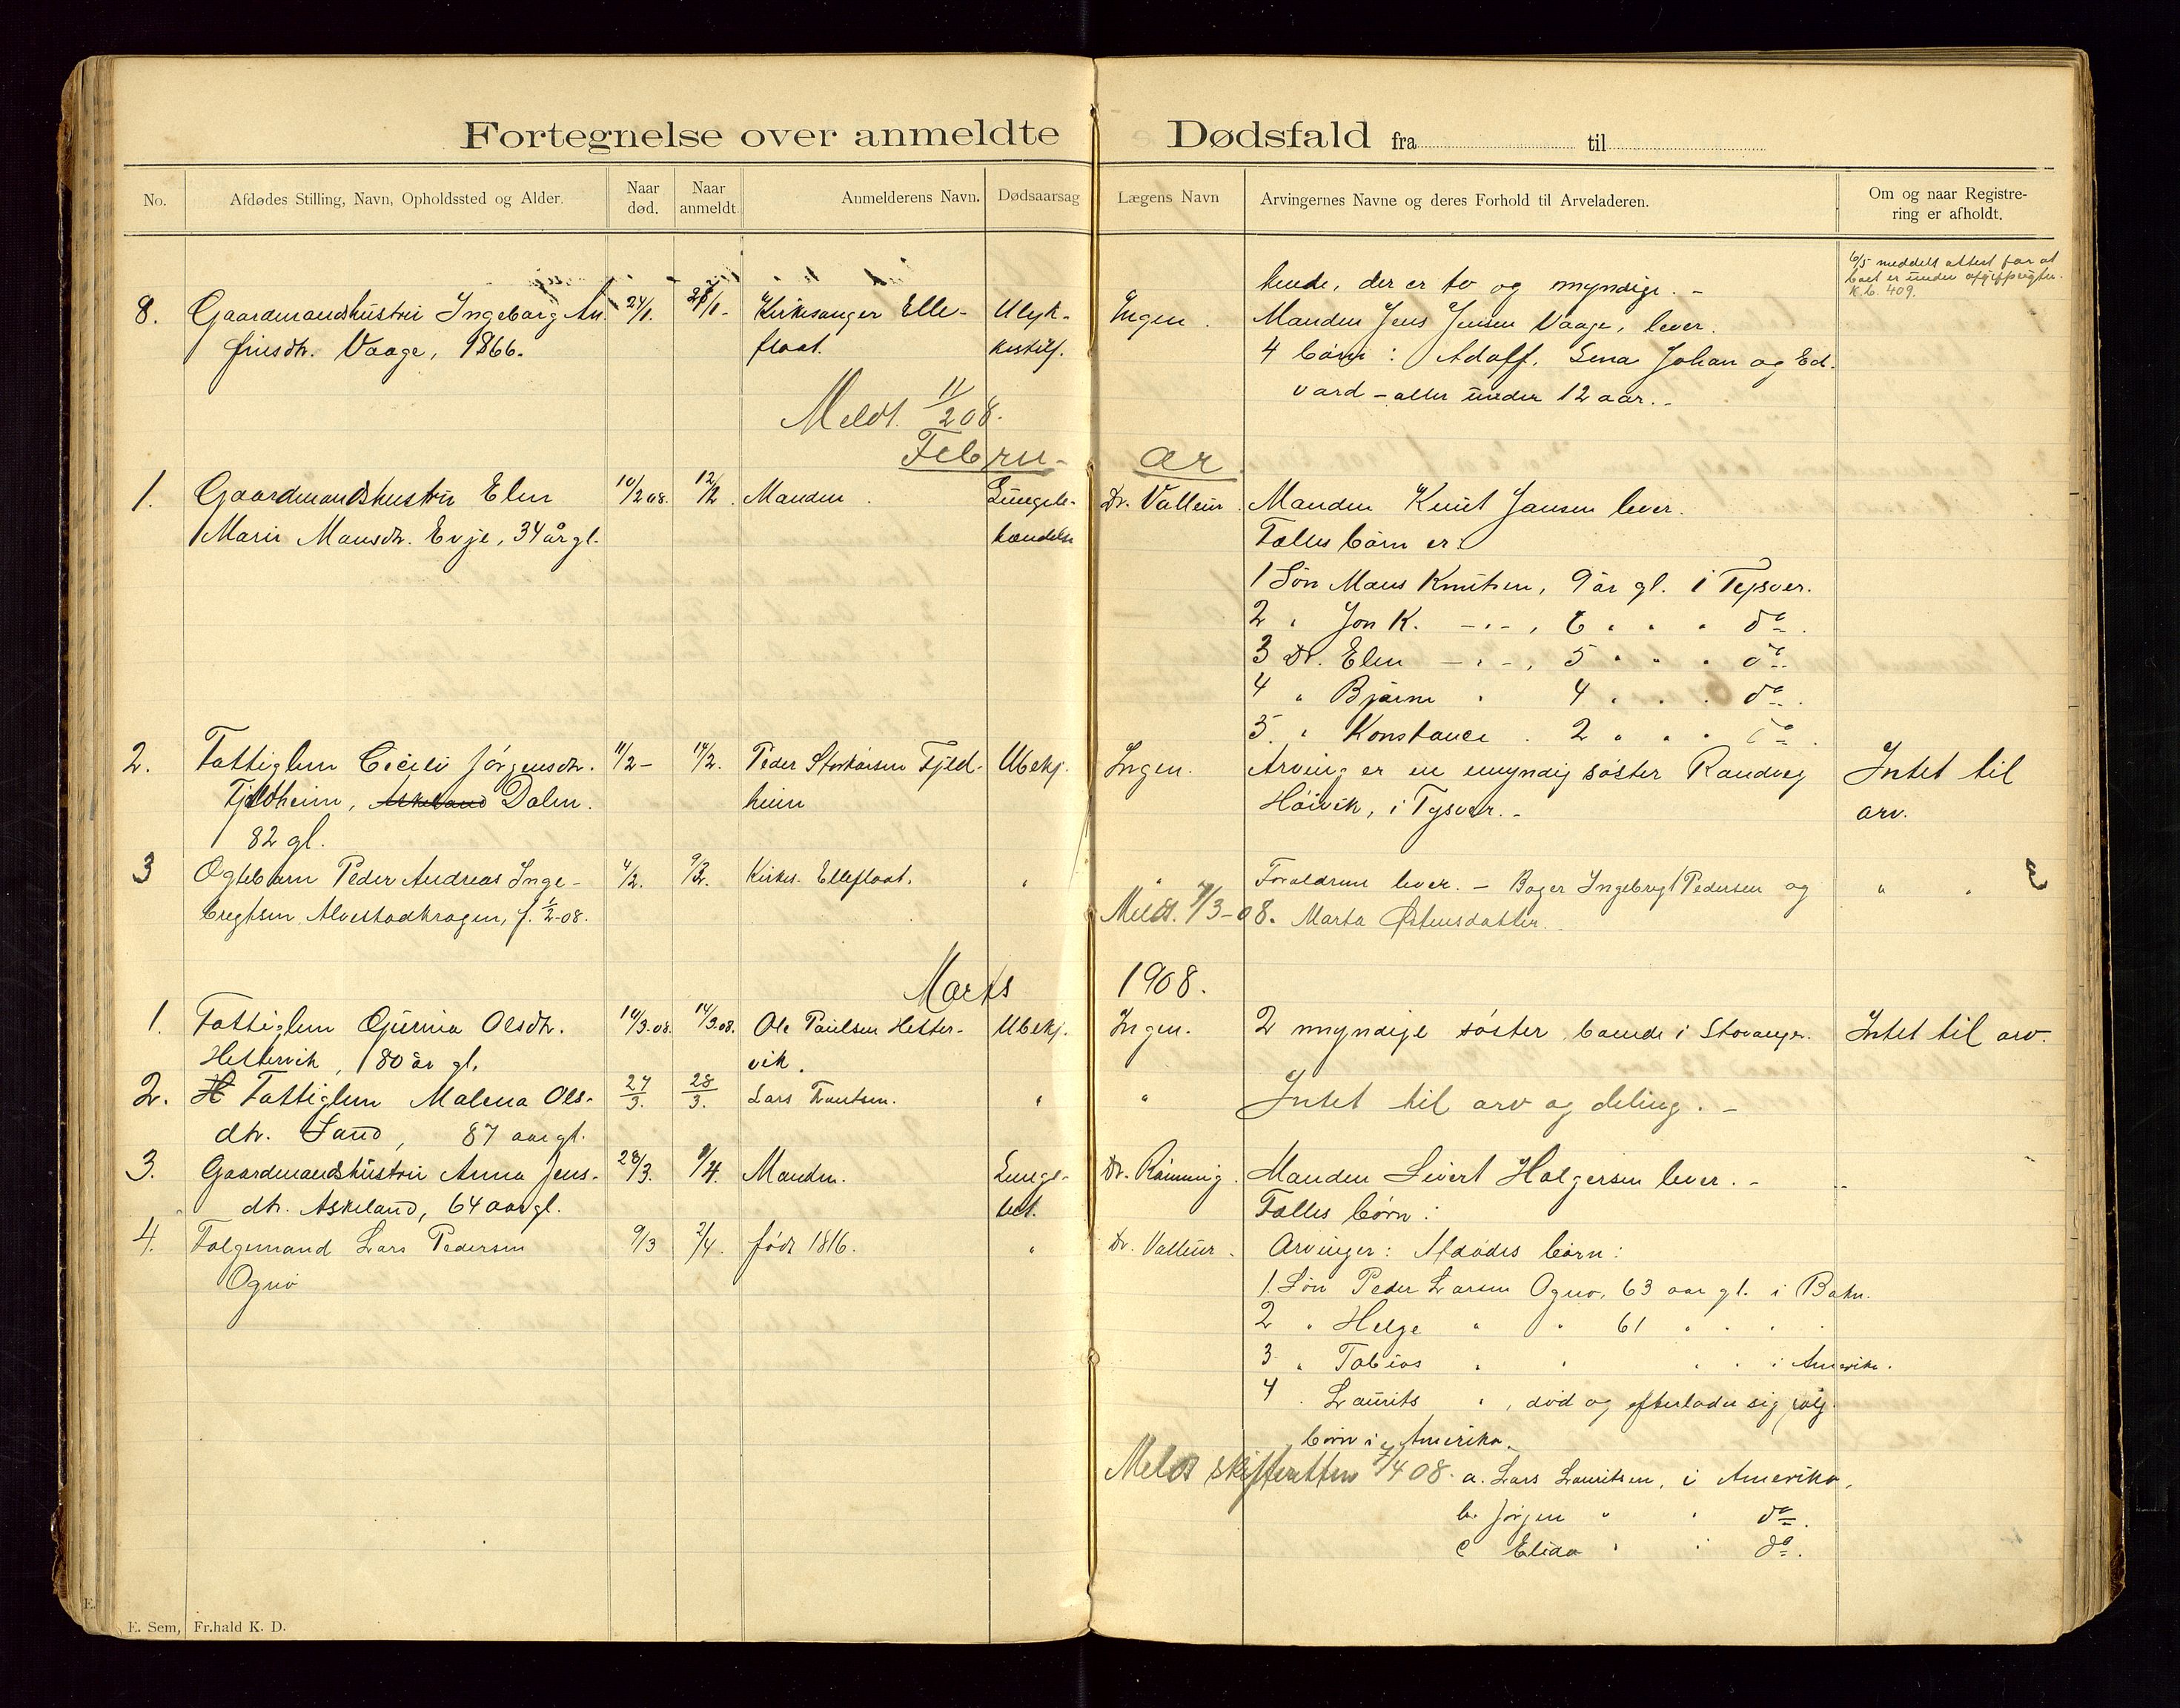 Fortegnelse over anmeldte Dødsfald fra til
No.
Afdødes Stilling, Navn, Opholdssted og Alder.
Naar død.
Naar anmeldt.
Anmelderens Navn.
Dødsaarsag
Lægens Navn
Arvingernes Navne og deres Forhold til Arveladeren.
Om og naar Registrering er afholdt.
6/5 meddelt attest for at
boet er under
K.b. 409.
der er to og myndige. -
8. Gaardmandshustru Ingeborg An- 24/1. 28/1- Kirkesanger Elle- Ulyk- Ingen. Manden Jens Jensen Vaage, lever.
finsdtr. Vaage, 1866. flaat. kestilf. 4 børn: Adolf, Lena Johan og Ed-
vard - alle under 12 aar. -
Meldt. 11/2 08.
Februar
1. Gaardmandshustru Elen 10/2 08. 12/2. Manden. Lungebe- Dr. Valleur. Manden Knut Jansen lever.
Marie Mansdtr. Evje, 34 år gl. tændelse Fælles børn er:
1 Søn Mans Knutsen, 9 år gl. i Tysvær.
2 " Jon K. -"-, 6 " " " do.
3 Dr. Elen -"-, 5 " " " do.
4 " Bjarne " 4 " " " do.
5. " Konstance " 2 " " " do.
2. Fattiglem Cicili Jörgensdtr. 11/2- 14/2. Peder Storkårsen Fjeld- Ubekj. Ingen. Arving er en myndig søster Randveg Intet til
Fjeldheim, Askeland Dalen. heim Høivik, i Tysvær. - arv.
82 gl.
3 Ogtebarn Peder Andreas Inge- 4/2. 9/2. Kirkes. Elleflaat. " " Forældrene lever. - Bager Ingebregt Pedersen og " "
bregtsen Alvestadkrogen, f. 1/2-08. Meldt. 7/3-08. Marta Østensdatter.
Marts 1908.
1. Fattiglem Gjurina Olsdtr. 14/3.08. 14/3.08. Ole Paulsen Hetter- Ubekj. Ingen. 2 myndige søster, bænde i Stavanger. Intet til arv.
Hettervik, 80 år gl. vik.
2. H Fattiglem Malena Ols- 27/3. 28/3. Lars Trantsen. " " Intet til arv og deling. -
dtr. Sand, 87 aar gl.
3. Gaardmandshustru Anna Jens- 28/3. 9/4. Manden. Lungebet. Dr. Rönning. Manden Sivert Holgersen lever. - "
dtr. Askeland, 64 aar gl. Fælles børn:
4. Folgemand Lars Pedersen 9/3 2/4. født 1816. " Dr. Valleur. Arvinger: Afdødes børn:
Ognø
1. Søn Peder Larsen Ognø, 63 aar gl. i Bokn.
2 " Helge " " 61 " " " "
3 " Tobias " " " " i Amerika.
4 " Laurits " , død og efterlader sig følg.
børn i Amerika.
Meldt skifteretten 7/4 08. a. Lars Lauritsen, i Amerika,
b. Jørgen " " do.
c Elida " " do.
E. Sem, Fr.hald K. D.